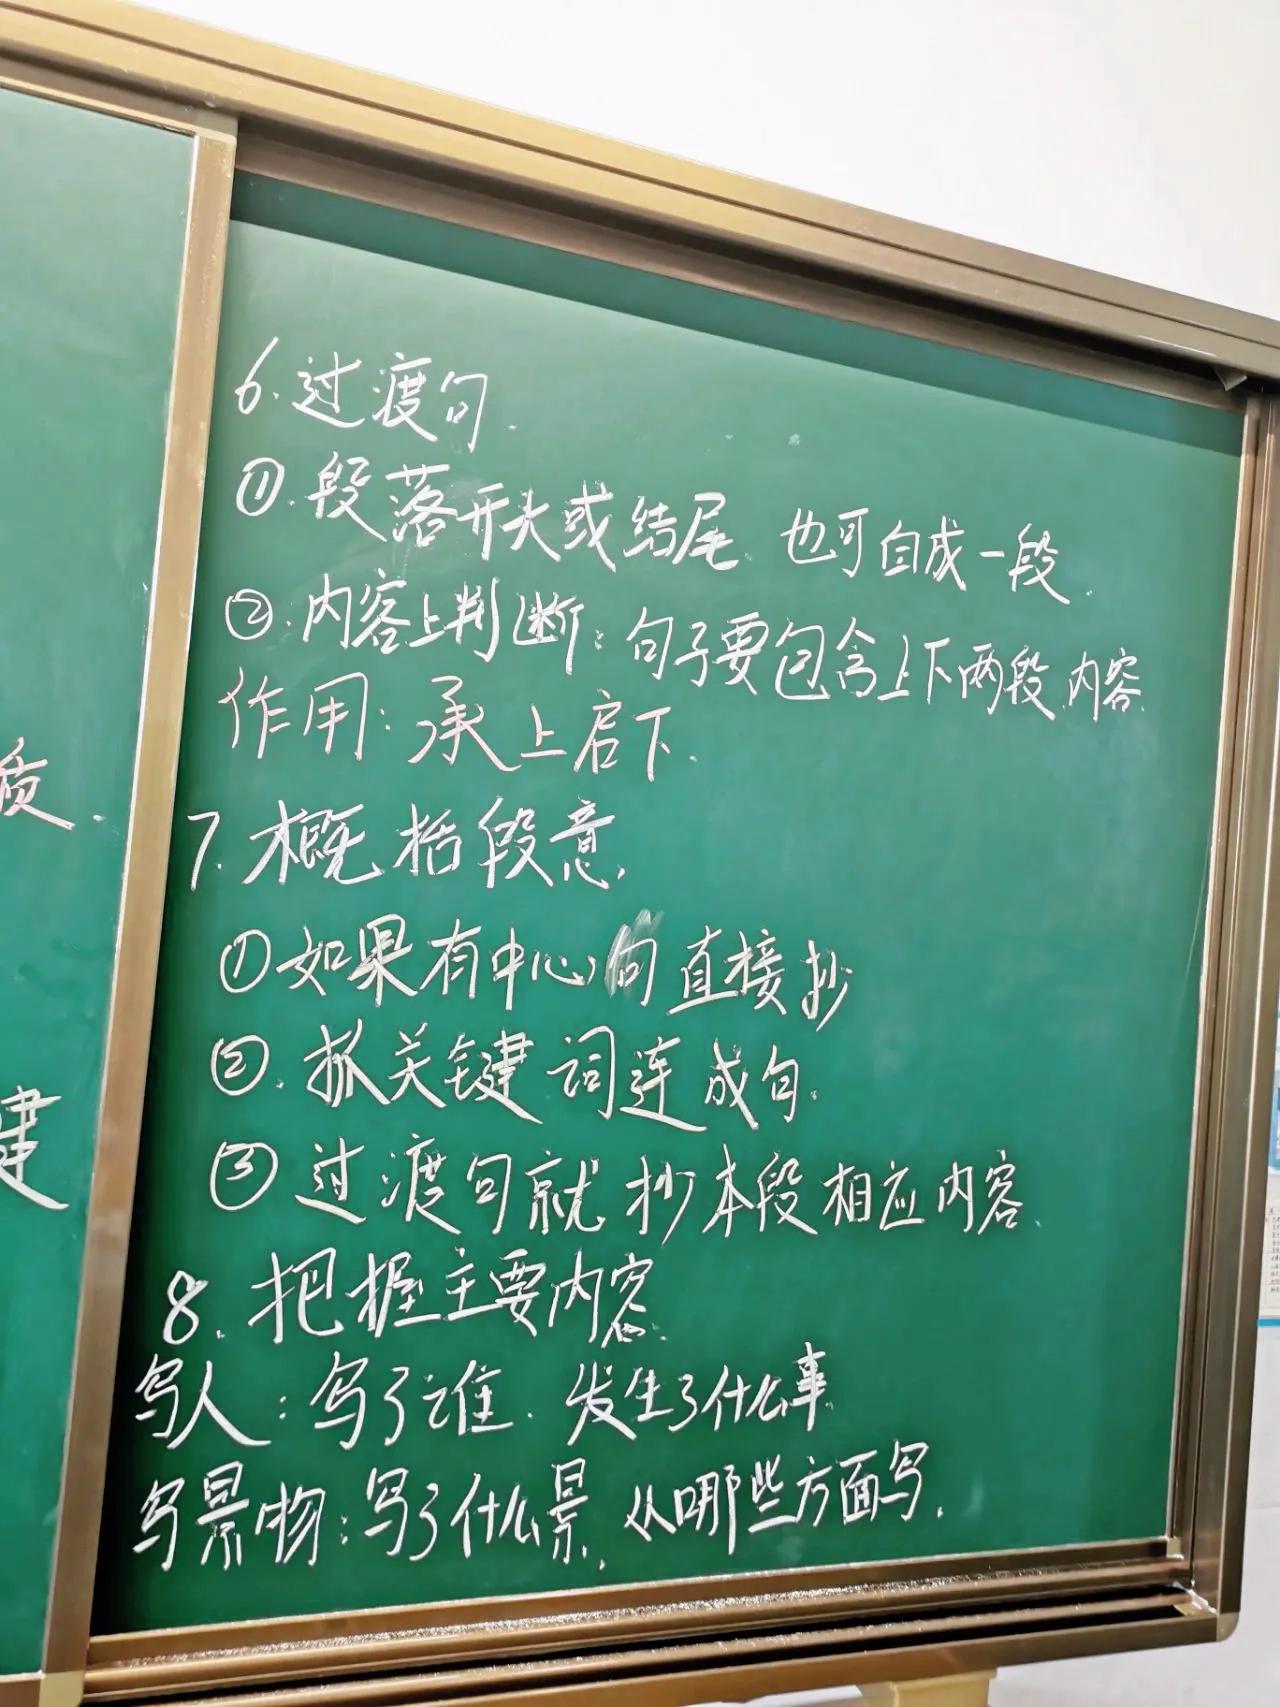 质.
建
6.过渡句.
①.段落开头或结尾 也可自成一段.
②.内容上判断:句子要包含上下两段内容.
作用:承上启下.
7.概括段意.
①如果有中心句直接抄
②.抓关键词连成句.
③过渡句就抄本段相应内容.
8.把握主要内容.
写人:写了谁.发生了什么事.
写景物:写了什么景,从哪些方面写.